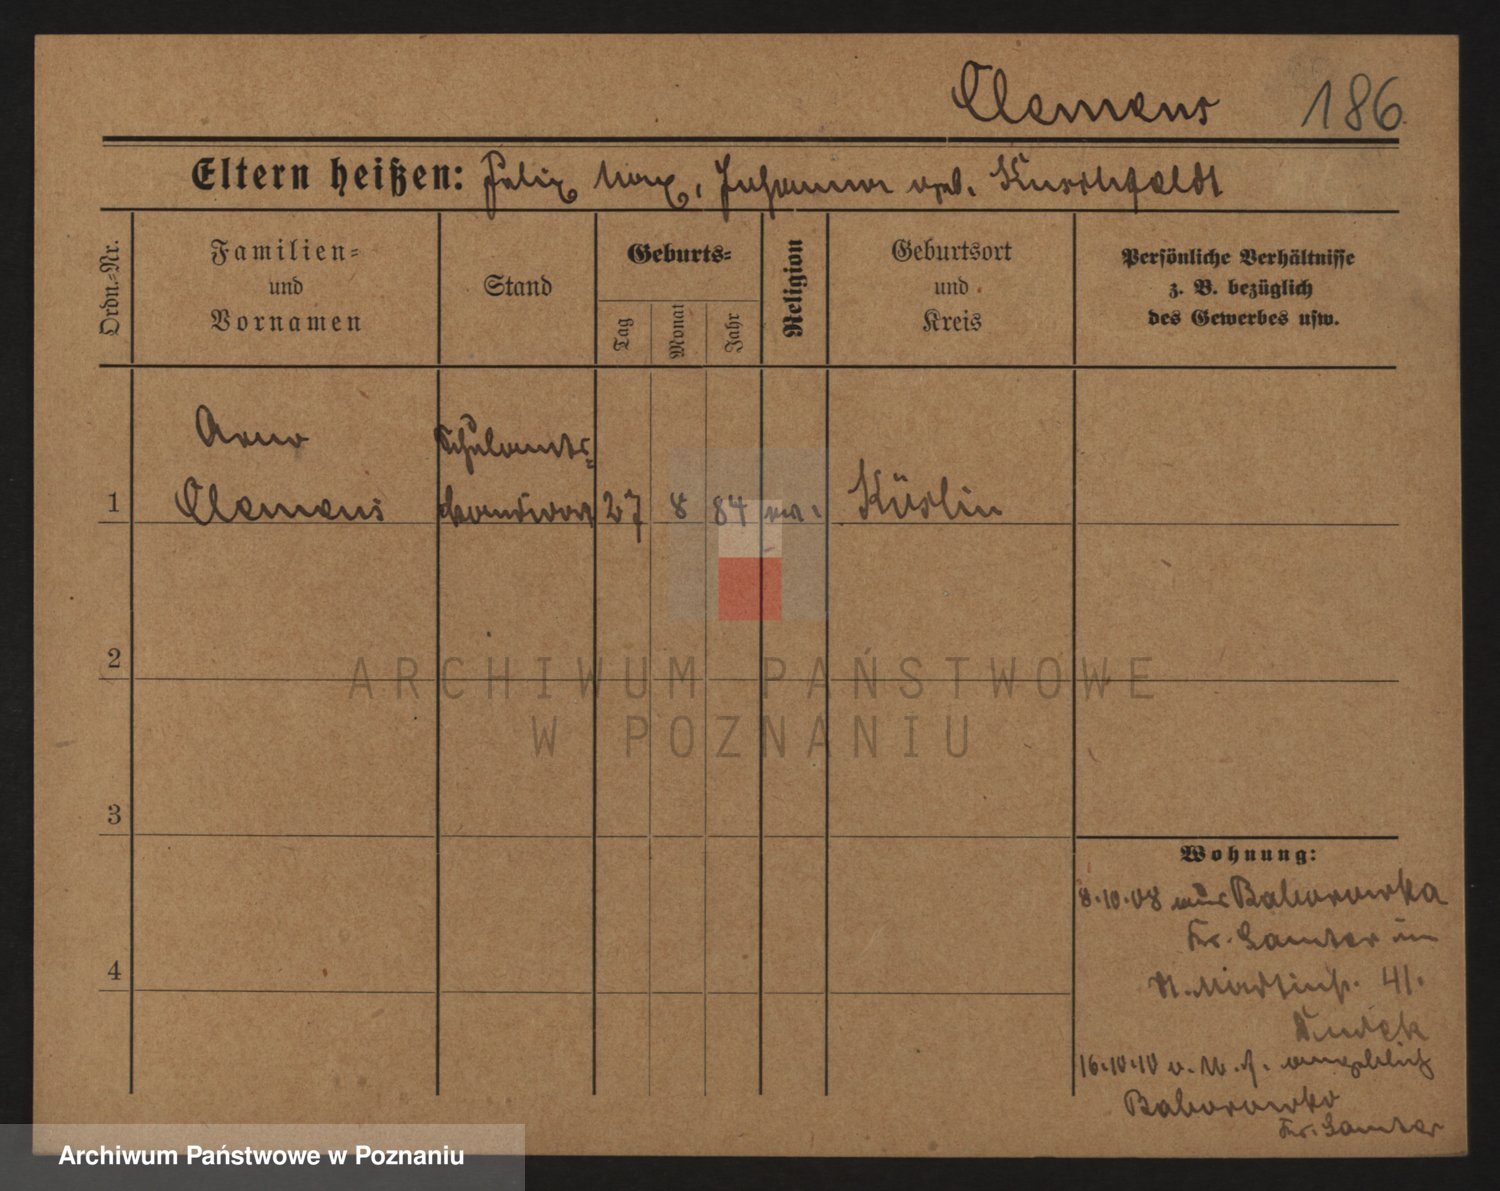 Clemens 186
Eltern heißen: Felix Max, Johanna geb. Kirschfeldt
Ordn.-Nr.
Familien-
und
Vornamen
Stand
Geburts-
Tag
Monat
Jahr
Religion
Geburtsort
und
Kreis
Persönliche Verhältnisse
z. B. bezüglich
des Gewerbes usw.
Arno
Schulamts-
1 Clemens 27 8 84 Küstin
2
3
4
Wohnung:
8.10.08 aus Baborowka
Kr. Samter in
41.
16.10.10 angeblich
Baborowko
Kr. Samter
ARCHIWUM PAŃSTWOWE
W POZNANIU
Archiwum Państwowe w Poznaniu